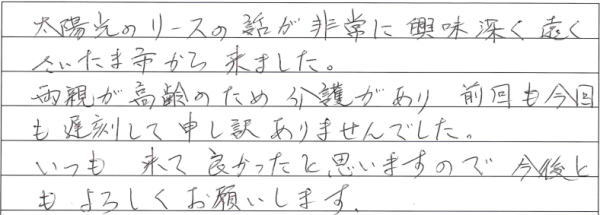 太陽光のリースの話が非常に興味深く遠く
さいたま市から来ました。
両親が高齢のため介護があり 前回も今回
も遅刻して申し訳ありませんでした。
いつも 来て良かったと思いますので 今後と
もよろしくお願いします。